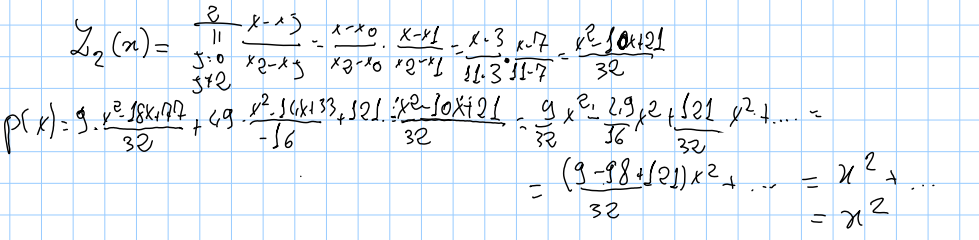 L₂(x) = ∏_{j=0, j≠2}^{2} (x-xj)/(x2-xj) = (x-x0)/(x2-x0) · (x-x1)/(x2-x1) = (x-3)/(11-3) · (x-7)/(11-7) = (x²-10x+21)/32
p(x) = 9 · (x²-18x+77)/32 + 49 · (x²-14x+33)/-16 + 121 · (x²-10x+21)/32 = 9/32 x² - 49/16 x² + 121/32 x² + .... =
= (9-98+121)/32 x² + ... = x² + ...
= x²